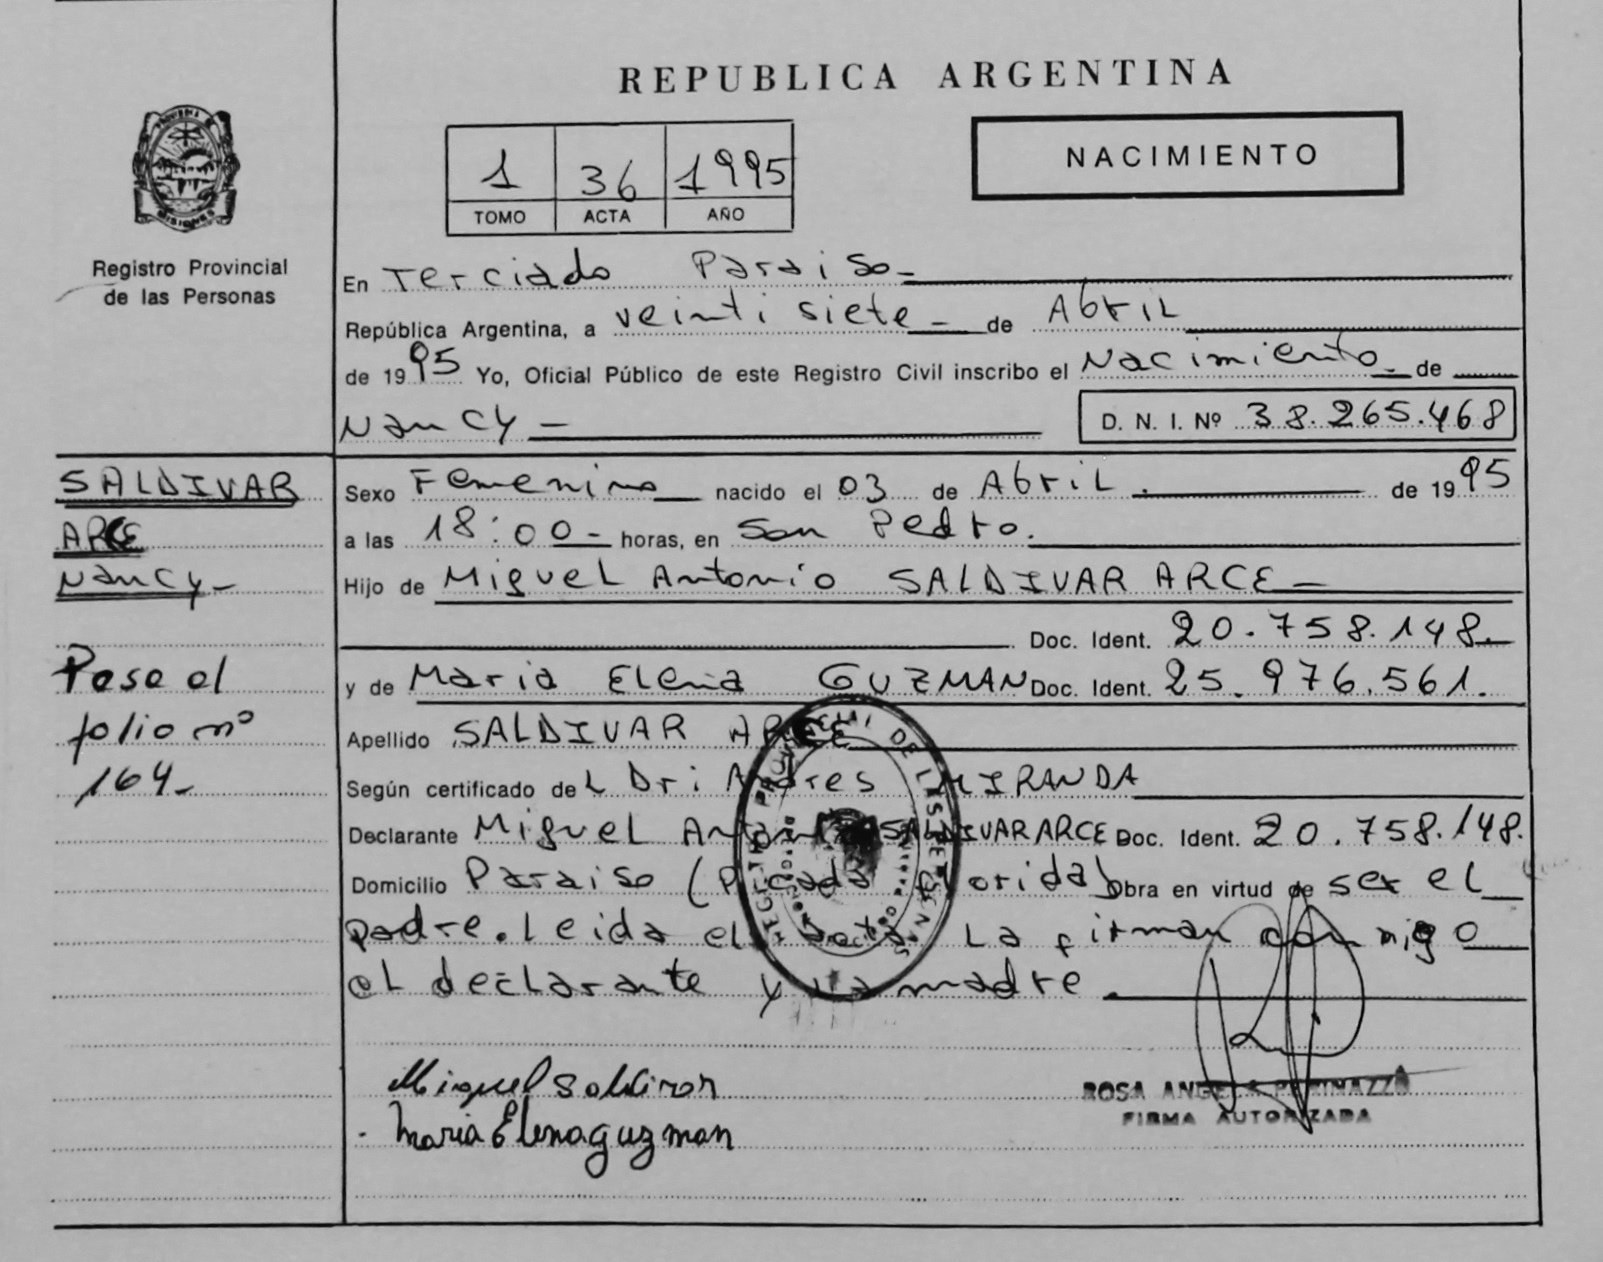 REPUBLICA ARGENTINA
NACIMIENTO
1 36 1995
TOMO ACTA AÑO
MISIONES
Registro Provincial
de las Personas
En Terciado Paraiso-
República Argentina, a veinti siete - de Abril
de 1995 Yo, Oficial Público de este Registro Civil inscribo el Nacimiento - de
Nancy -
D. N. I. Nº 38.265.468
SALDIVAR
ARCE
Nancy -
Pase al
folio nº
164-
Sexo Femenino nacido el 03 de Abril. de 1995
a las 18:00- horas, en San Pedro.
Hijo de Miguel Antonio SALDIVAR ARCE -
Doc. Ident. 20.758.148-
y de Maria Elena GUZMAN Doc. Ident. 25.976.561.
Apellido SALDIVAR ARCE
Según certificado del Dr: Andres MIRANDA
Declarante Miguel Antonio SALDIVAR ARCE Doc. Ident. 20.758.148.
Domicilio Paraiso (Picada Florida) Obra en virtud de ser el
padre. Leida el acta, La firman conmigo
el declarante y la madre.
Miguel Saldivar
Maria Elena guzman
ROSA
FIRMA AUTORIZADA